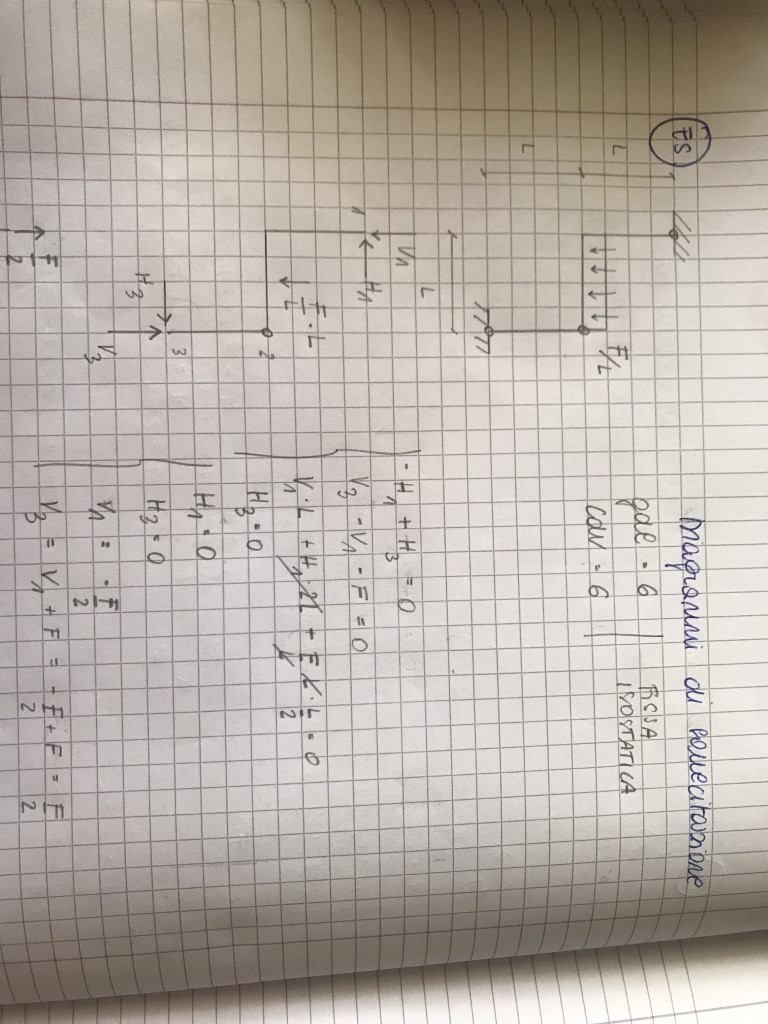 ES
Diagrammi di sollecitazione
L
L
F/L
L
gdl = 6
cdv = 6
ISOSTATICA
V1
H1
1
F/L · L
2
3
H3
V3
- H1 + H3 = 0
V3 - V1 - F = 0
V1 · L + H1 · 2L + F/L · L · L/2 = 0
H3 = 0
H1 = 0
H3 = 0
V1 = - F/2
V3 = V1 + F = - F/2 + F = F/2
F/2